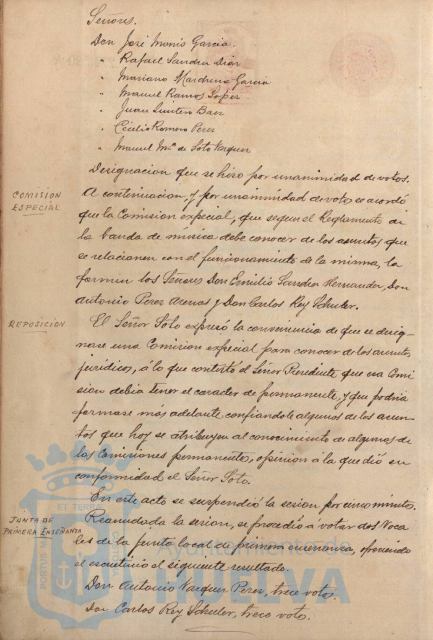 Señores.
Don José Monis Garcia.
" Rafael Sandra Dias
" Mariano Mardrena Garcia
" Manuel Ramos Lopez
" Juan Quintero Baez
" Cecilio Romero Perez
" Manuel Mª de Soto Vazquez
Designacion que se hizo por unanimidad de votos.
COMISION
ESPECIAL
A continuacion y por unanimidad de votos se acordó
que la Comision especial, que segun el Reglamento de
la banda de música debe conocer de los asuntos que
se relacionen con el funcionamiento de la misma, la
formen los Señores Don Emilio Sandra Hernandez, Don
Antonio Perez Arenas y Don Carlos Rey Schuler.
REPOSICIÓN
El Señor Soto expresó la conveniencia de que se desig-
nase una Comision especial para conocer de los asuntos
jurídicos, á lo que contestó el Señor Presidente que esa Comi
sion debia tener el caracter de permanente, y que podria
formarse mas adelante, confiandole algunos de los asun-
tos que hoy se atribuyen al conocimiento de algunas de
las Comisiones permanentes, opinion á la que dió su
conformidad el Señor Soto.
En este acto se suspendió la sesion por cinco minutos.
JUNTA DE
PRIMERA ENSEÑANZA
Reanudada la sesion, se procedió á votar dos Voca
les de la Junta local de primera enseñanza, ofreciendo
el escrutinio el siguiente resultado.
Don Antonio Vazquez Perez, trece votos.
Don Carlos Rey Schuler, trece votos.
Ayuntamiento de
HUELVA
PORTUS
ET TERRAE